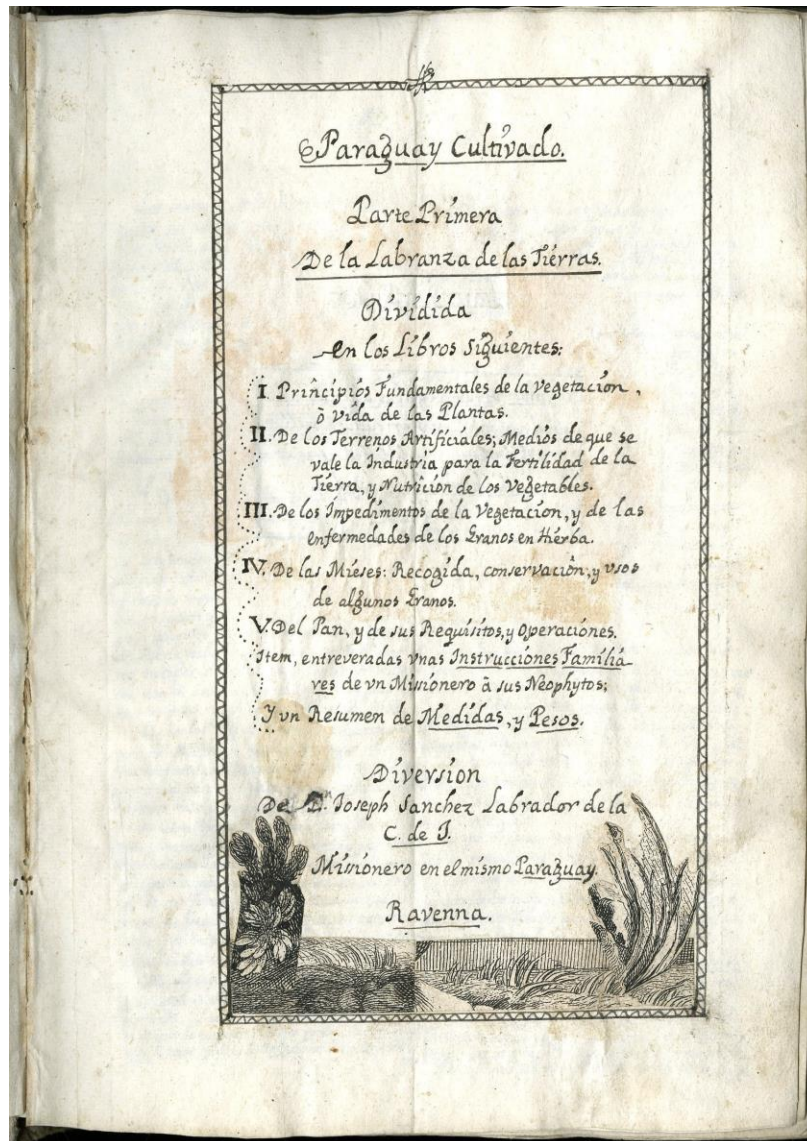 Paraguay Cultivado.
Parte Primera
De la Labranza de las Tierras.
Dividida
en los Libros Siguientes:
I. Principios Fundamentales de la Vegetacion,
ò vida de las Plantas.
II. De los Terrenos Artificiales; Medios de que se
vale la Industria para la Fertilidad de la
Tierra, y Nutricion de los Vegetables.
III. De los Impedimentos de la Vegetacion, y de las
enfermedades de los Granos en Hierba.
IV. De las Mieses: Recogida, conservaciòn, y vsos
de algunos Granos.
V. Del Pan, y de sus Requisitos, y Operaciones.
Item, entreveradas vnas Instrucciones Familia-
res de vn Missionero à sus Neophytos;
Y vn Resumen de Medidas, y Pesos.
Diversion
De Dn. Joseph Sanchez Labrador de la
C. de J.
Missionero en el mismo Paraguay.
Ravenna.